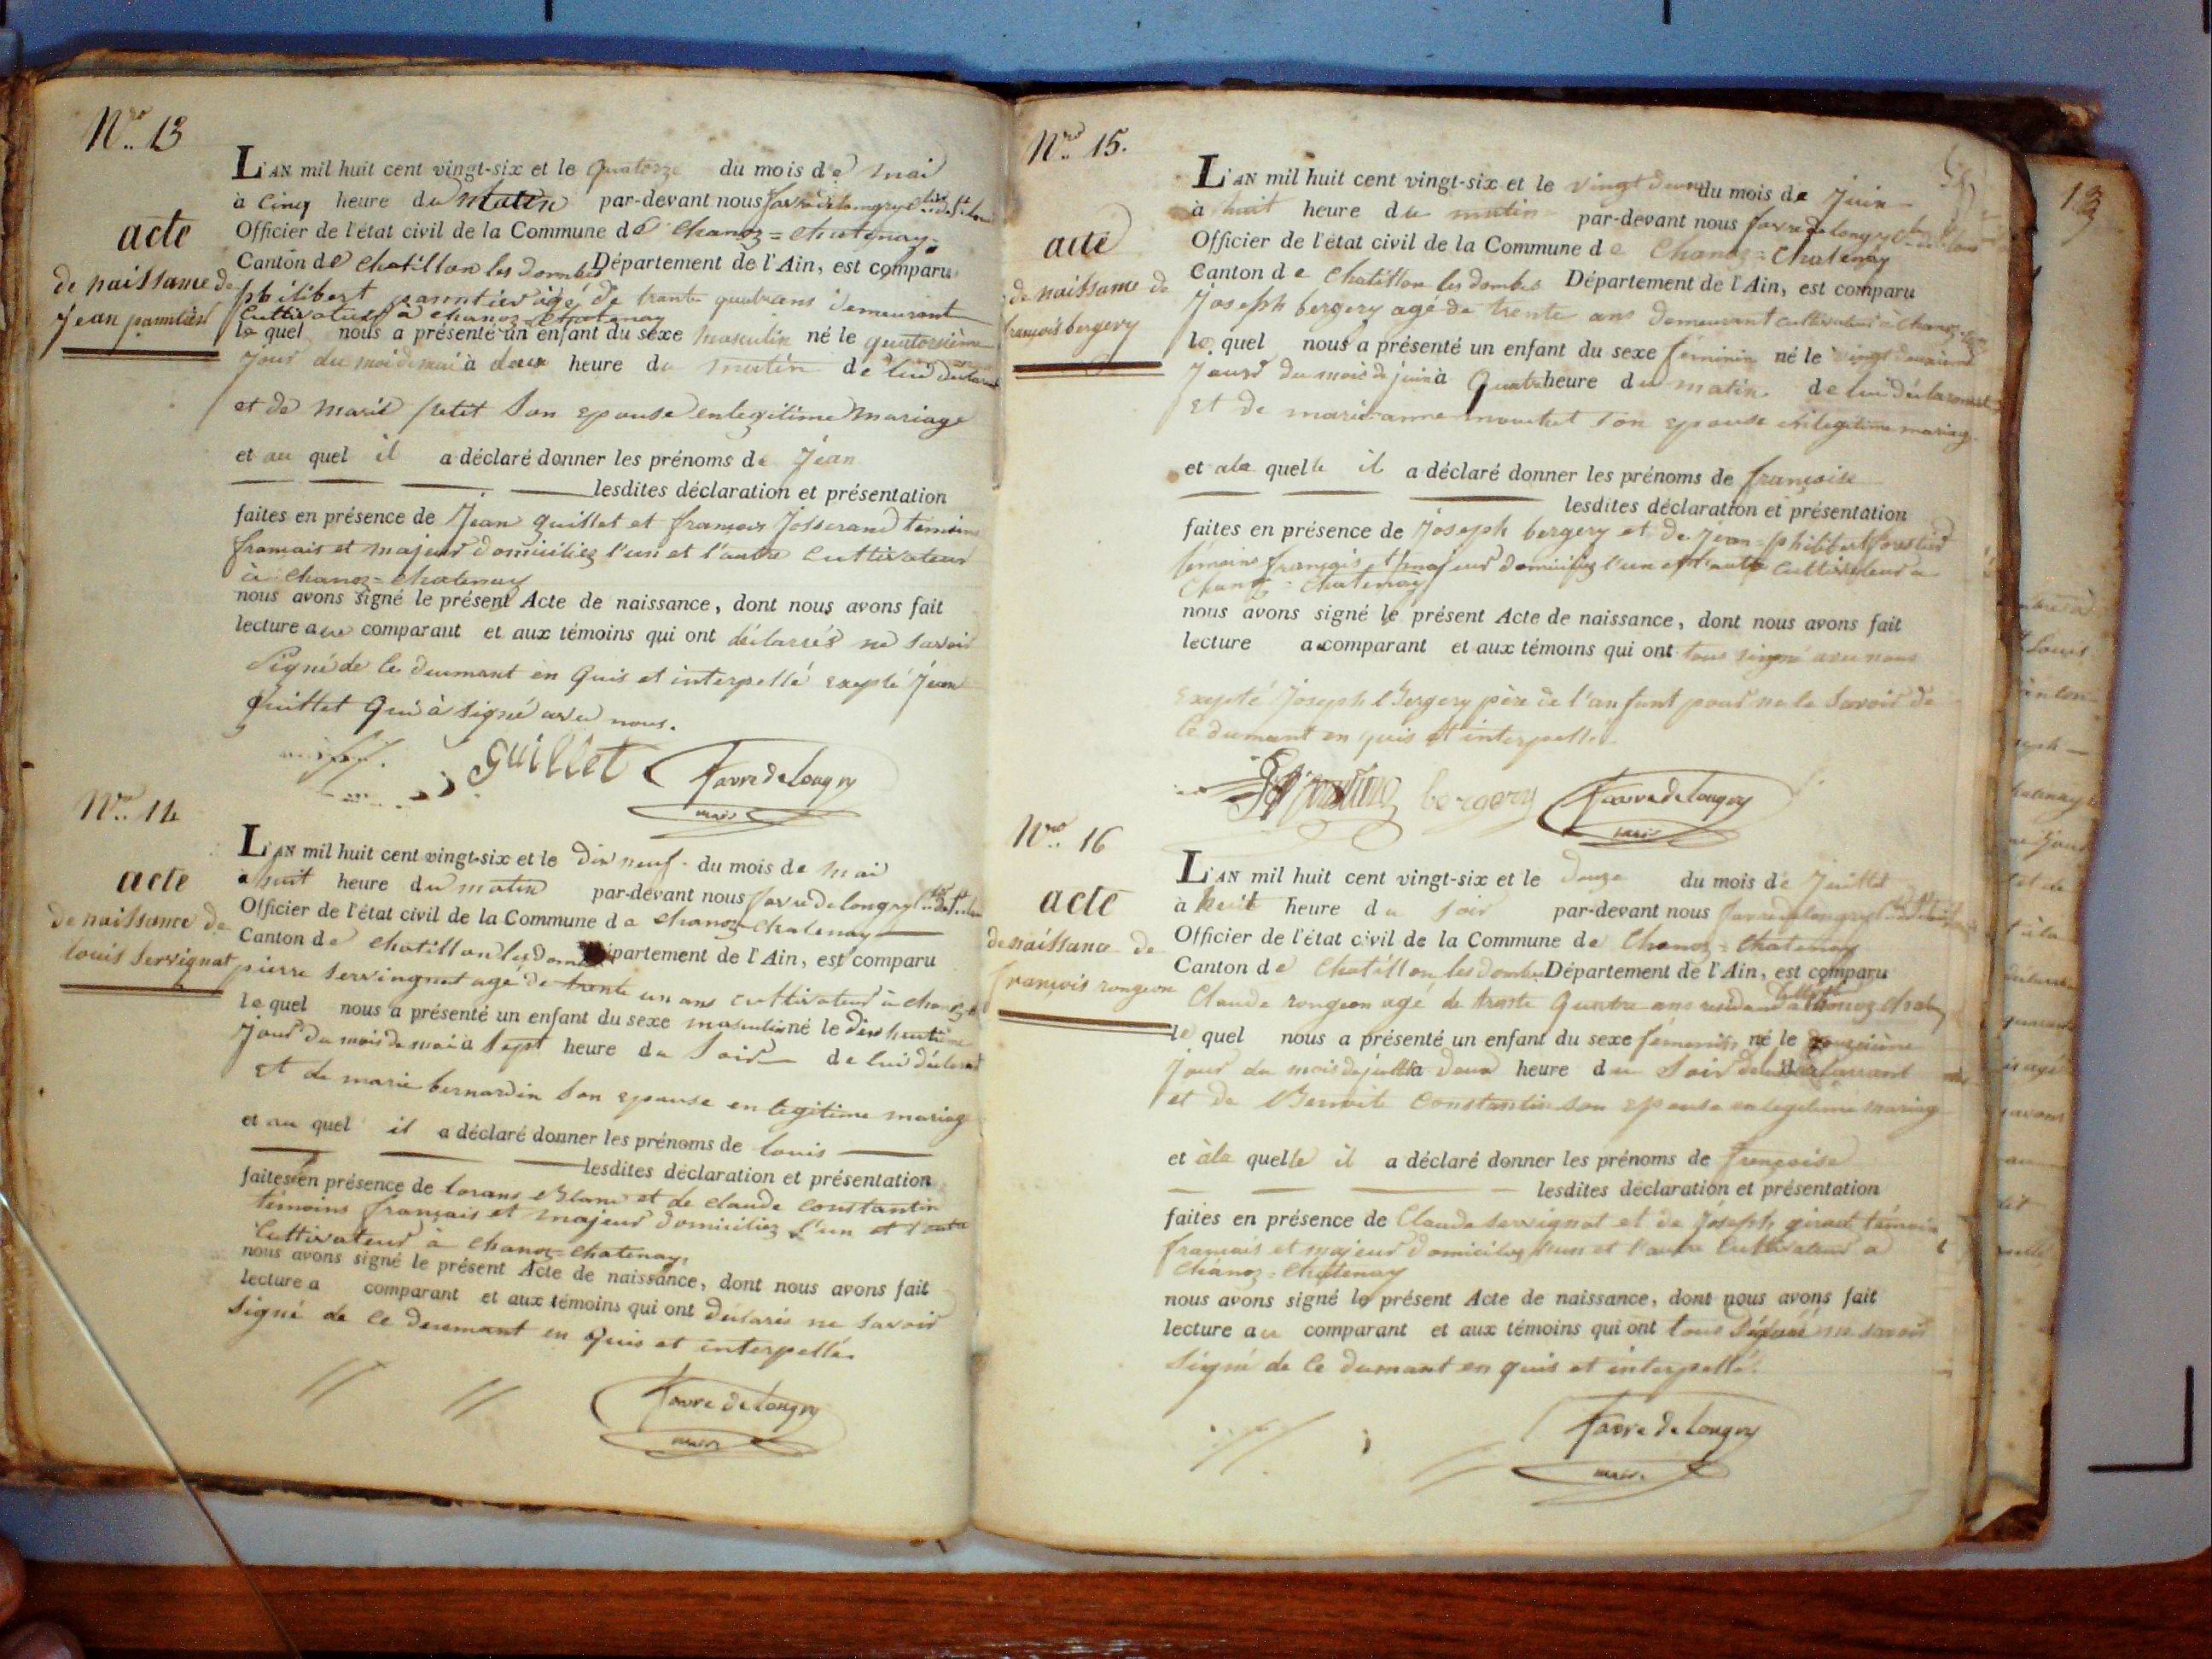 Nro. 13
acte
de naissance de
Jean panntier
L'AN mil huit cent vingt-six et le quatorze du mois de mai
à cinq heure du matin par-devant nous favre de longry
Officier de l'état civil de la Commune de Chanoz=Chatenay
Canton de Chatillon les dombes Département de l'Ain, est comparu
philibert agé de trante quatre ans demeurant
Cultivateur à chanoz Chatenay
le quel nous a présenté un enfant du sexe masculin né le quatorsième
jour du moi de mai à deux heure du matin de lui declarant
et de marie petit Son epouse en legitime mariage
et au quel il a déclaré donner les prénoms de Jéan
lesdites déclaration et présentation
faites en présence de Jéan guillet et françois Josserand témoins
francais et majeur domiciliez l'un et l'autre Cultivateur
à Chanoz=chatenay
nous avons signé le présent Acte de naissance, dont nous avons fait
lecture au comparant et aux témoins qui ont déclarés ne savoir
Signé de le dumant en quis et interpellé exepté Jéan
guillet Qui à Signé avec nous.
guillet favre de longry
maire
Nro. 14
acte
de naissance de
louis Servignat
L'AN mil huit cent vingt-six et le dix neuf du mois de mai
a huit heure du matin par-devant nous favre de longry
Officier de l'état civil de la Commune de chanoz Chatenay
Canton de chatillon les dombes Département de l'Ain, est comparu
pierre Servingnat agé de trente un ans cultivateur à chanoz
le quel nous a présenté un enfant du sexe masculin né le dix huitième
Jour du mois de mai à Sept heure du Soir de lui déclarant
et de marie bernardin Son epouse en legitime mariage
et au quel il a déclaré donner les prénoms de louis
lesdites déclaration et présentation
faites en présence de lorans Blanc et de claude Constantin
témoins français et majeur domiciliez L'un et l'autre
Cultivateur à Chanoz=Chatenay,
nous avons signé le présent Acte de naissance, dont nous avons fait
lecture a comparant et aux témoins qui ont déclarés ne savoir
Signé de ce dumant en quis et interpellé.
favre de longry
maire
Nro. 15.
acte
de naissance de
françois bergery
L'AN mil huit cent vingt-six et le vingt deux du mois de Juin
à huit heure du matin par-devant nous favre de longry
Officier de l'état civil de la Commune de Chanoz=Chatenay
Canton de Chatillon les dombes Département de l'Ain, est comparu
Joseph bergery agé de trente ans demeurant cultivateur à Chanoz
le quel nous a présenté un enfant du sexe féminin né le vingt deuxieme
Jour du mois de juin à Quatre heure du matin de lui déclarant
et de marie anne moutet son epouse en legitime mariage
et a la quelle il a déclaré donner les prénoms de françoise
lesdites déclaration et présentation
faites en présence de Joseph bergery et de Jéan=philibert
témoins français et majeur domiciliez l'un et l'autre Cultivateur a
Chanoz=Chatenay
nous avons signé le présent Acte de naissance, dont nous avons fait
lecture au comparant et aux témoins qui ont tous signé avec nous
Exepté Joseph Bergery père de l'anfant pour ne le Savoir de
ce dumant en quis et interpellé.
bergery favre de longry
maire
Nro. 16
acte
de naissance de
françois rongeon
L'AN mil huit cent vingt-six et le douze du mois de Juillet
à huit heure du soir par-devant nous favre de longry
Officier de l'état civil de la Commune de Chanoz=Chatenay
Canton de Chatillon les dombes Département de l'Ain, est comparu
Claude rongeon agé de trante Quatre ans
le quel nous a présenté un enfant du sexe féminin né le douzième
jour du mois de juillet à deux heure du Soir de lui déclarrant
et de Benoite Constantin son epouse en legitime mariage
et à la quelle il a déclaré donner les prénoms de françoise
lesdites déclaration et présentation
faites en présence de Claude Servignat et de Joseph giraud témoins
francais et majeur domiciliez l'un et l'autre Cultivateur a
Chanoz=Chatenay
nous avons signé le présent Acte de naissance, dont nous avons fait
lecture au comparant et aux témoins qui ont tous ne savoir
Signé de Ce dumant en quis et interpellé.
favre de longry
maire
13